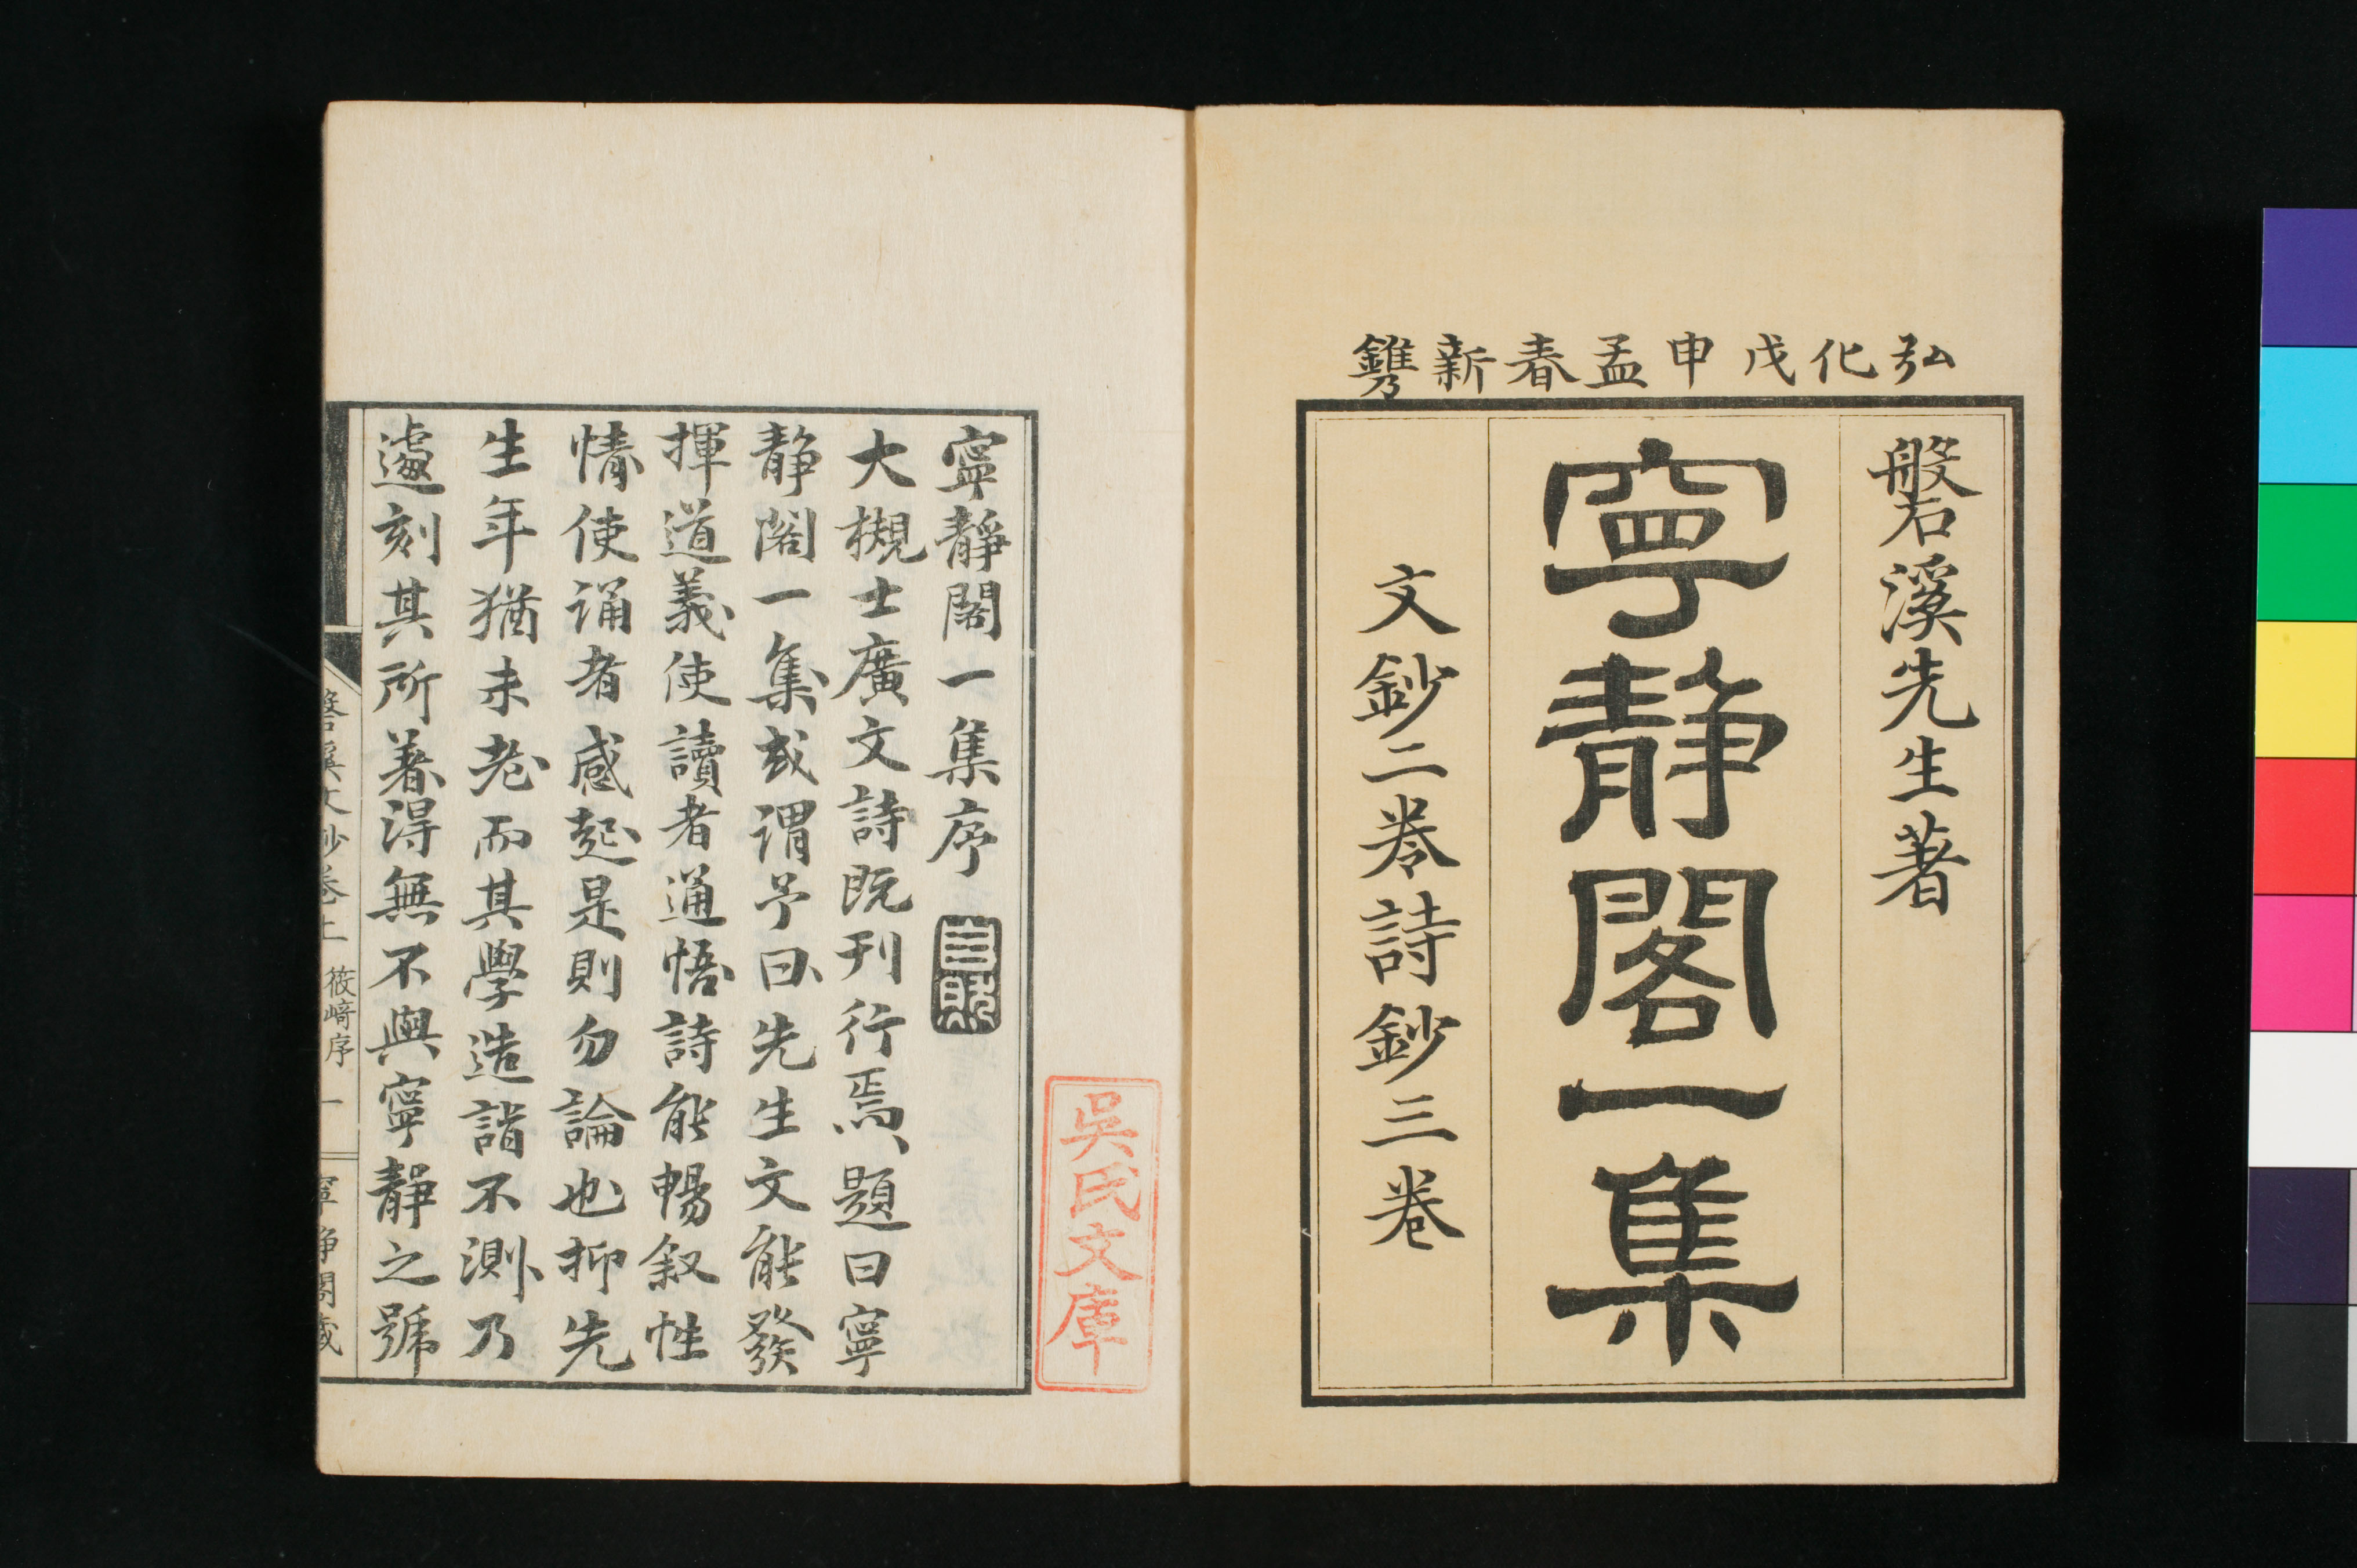 弘化戊申孟春新鐫
磐溪先生著
寧靜閣一集
文鈔二卷詩鈔三卷
吳氏文庫
寧靜閣一集序
大槻士廣文詩既刊行焉題曰寧
靜閣一集或謂予曰先生文能發
揮道義使讀者通悟詩能暢叙性
情使誦者感起是則勿論也抑先
生年猶未老而其學造詣不測乃
遽刻其所著得無不與寧靜之號
磐溪文鈔卷上 筱﨑序 一 寧靜閣藏